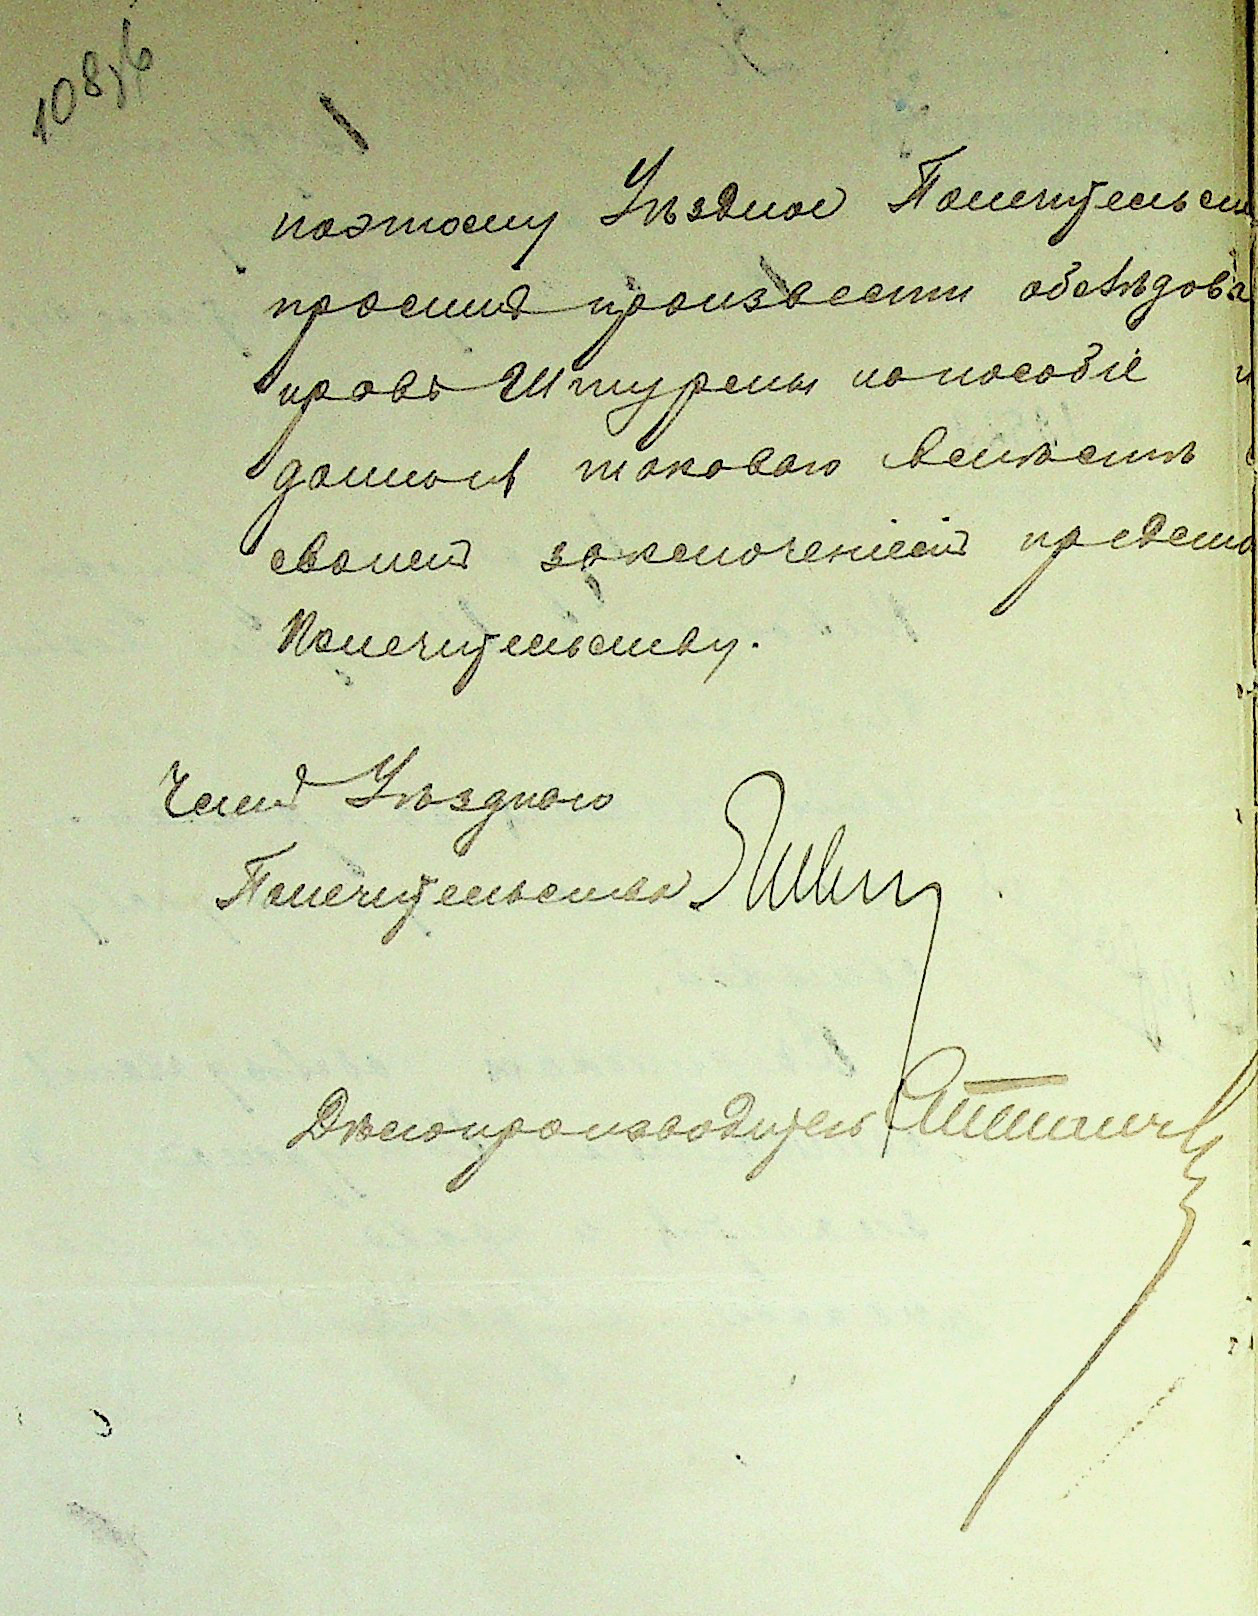 108 об
поэтому Уѣздное Попечительст
проситъ произвести обслѣдова
правъ Штурмы на пособіе и
данныя таковаго вмѣстѣ с
своимъ заключеніемъ предста
Попечительству.
Членъ Уѣзднаго
Попечительства
Дѣлопроизводитель